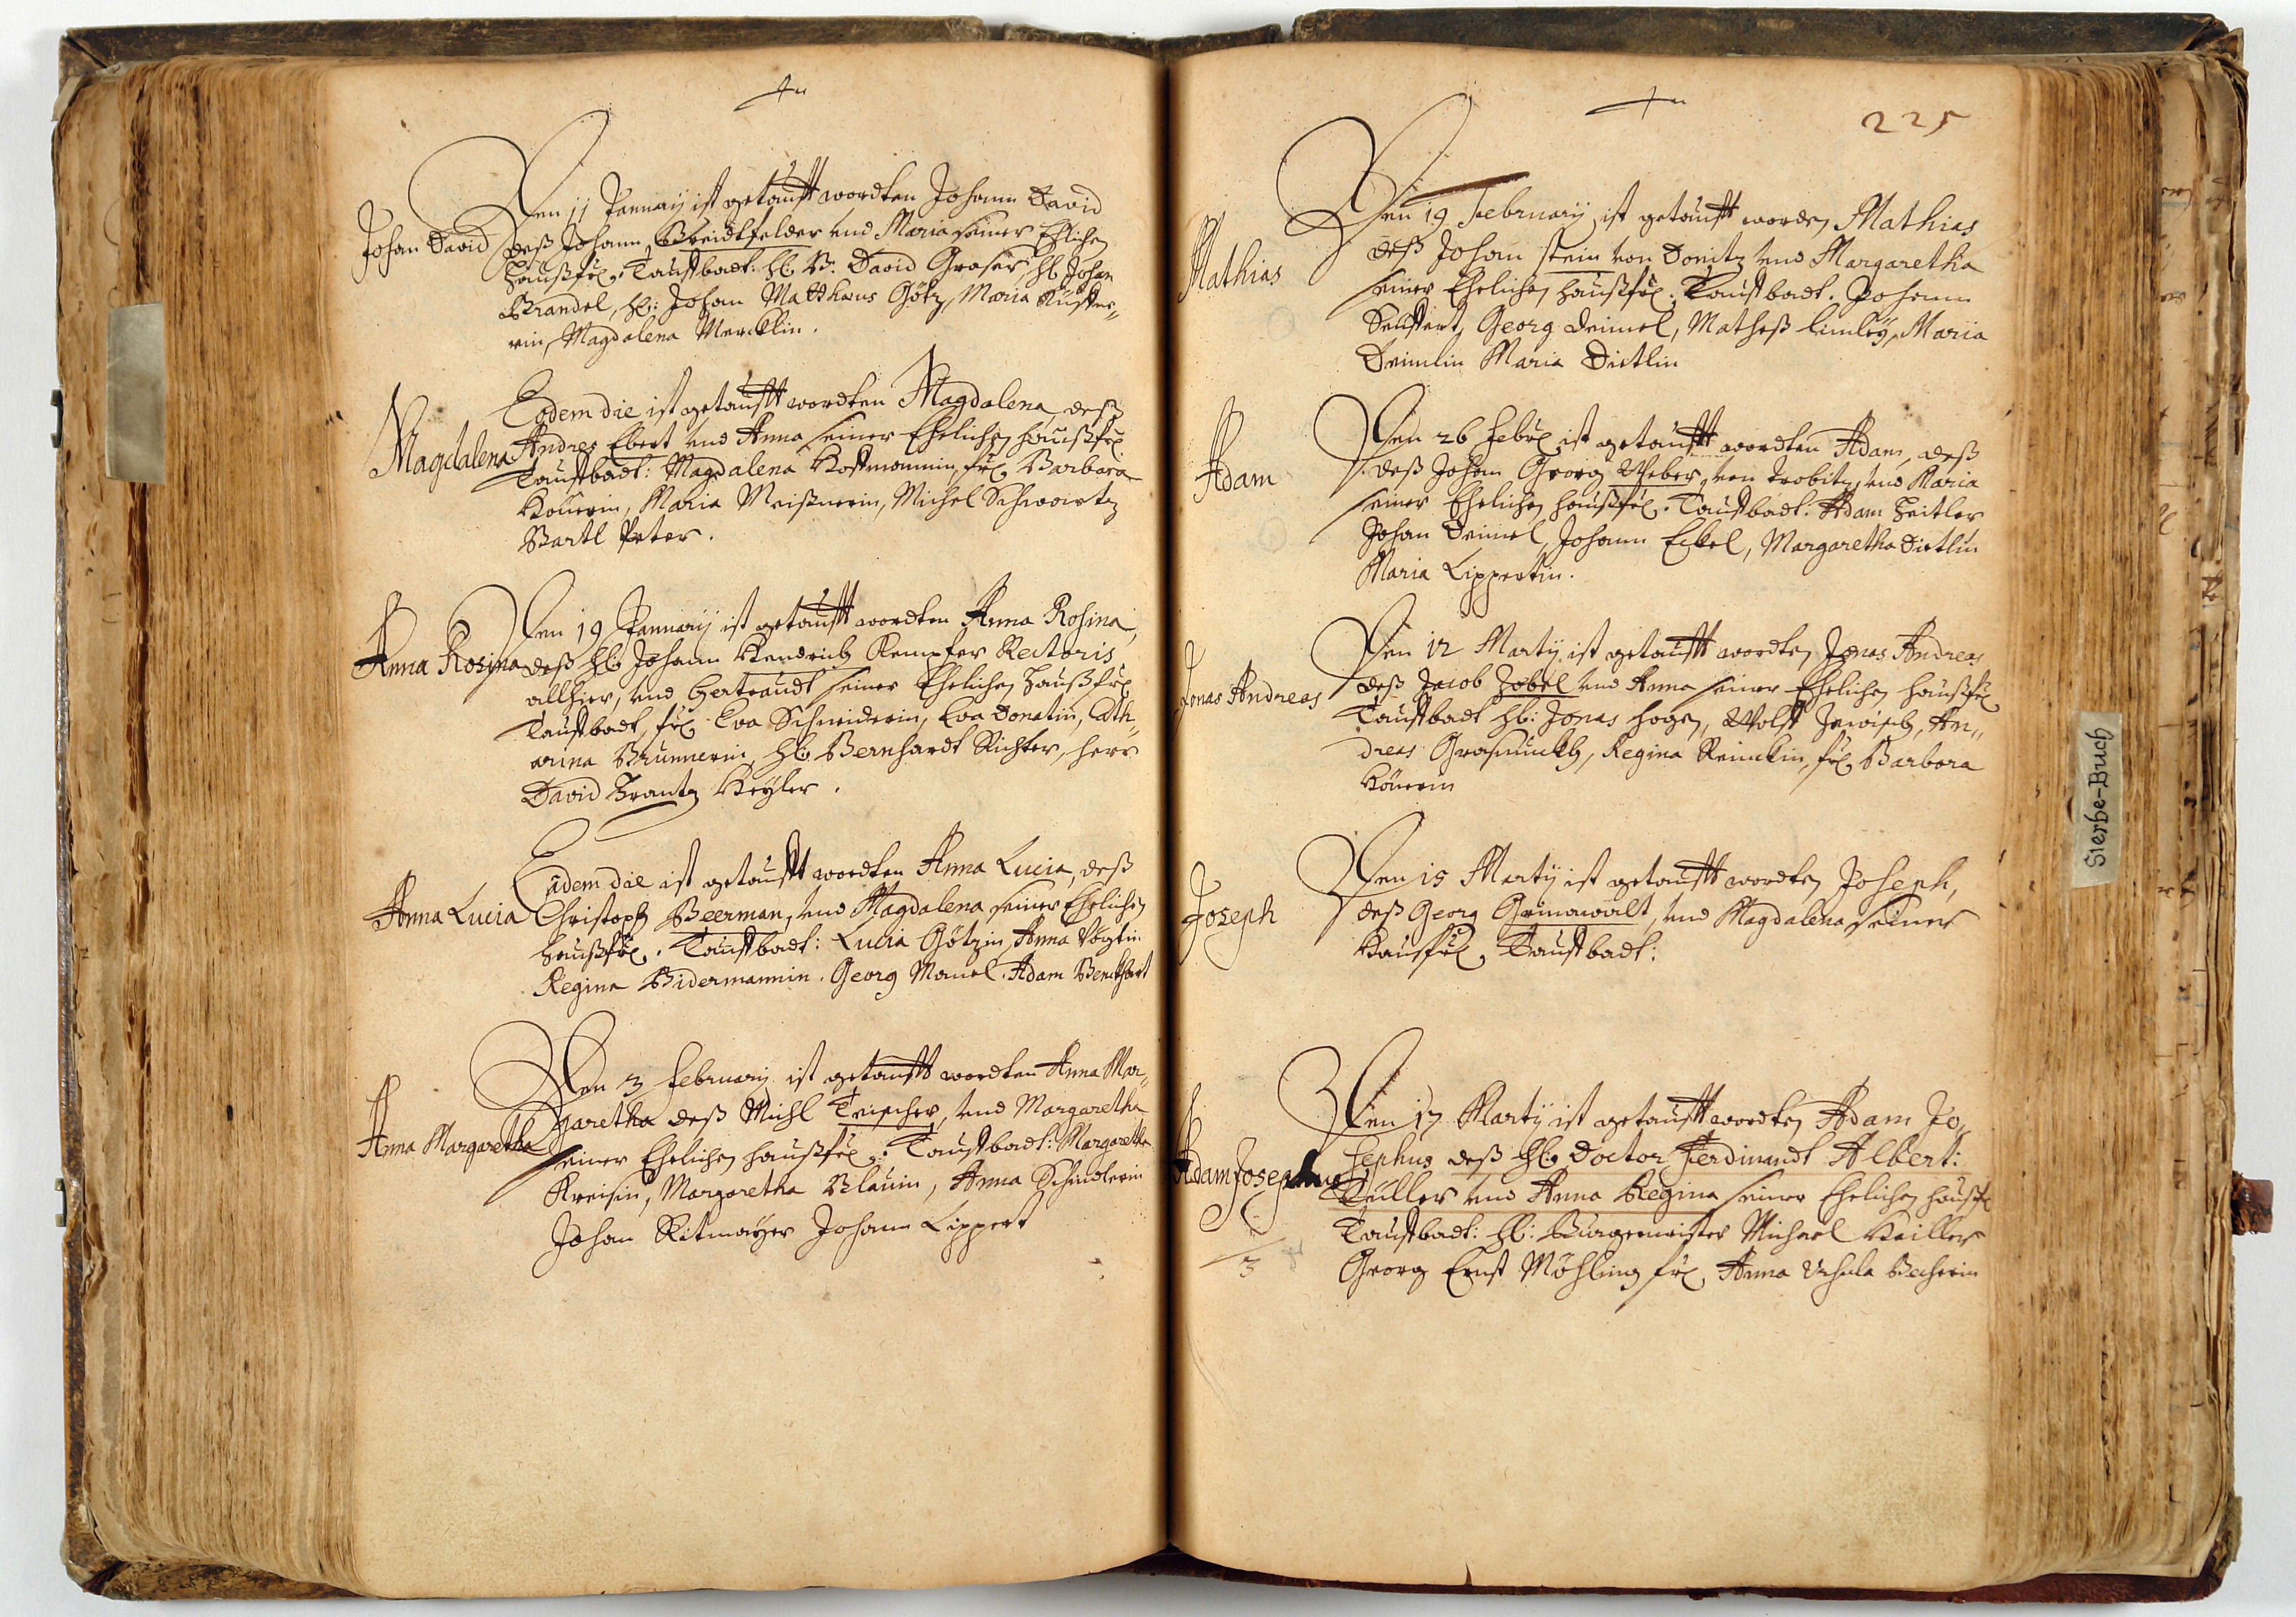 Johan David
Den 11 Januarij ist getaufft wordten Johann David
deß Johann Breidtfelder und Maria seiner Ehlichen
Haußfr. Tauffbadt: H: B. David Graser, H: Johan
Brandel, H: Johan Matthæus Götz, Maria
rin, Magdalena Mercklin.
Magdalena
Eodem die ist getaufft wordten Magdalena, deß
Andres Ebert und Anna seiner Ehelichen haußfr
Tauffbadt: Magdalena Hoffmannin, fr. Barbara
Maria Meißnerin, Michel Schwartz
Bartl Peter.
Anna Rosina
Den 19 Januarij ist getaufft wordten Anna Rosina,
deß H: Johann Hendrich Kempfer Rectoris
allhier, und Gertraudt seiner Ehelichen Haußfr
Tauffbadt, fr. Eva Schneiderin, Eva Donatin, Cath„
arina Brunnerin, H: Bernhardt Richter, herr
David Frantz Keyler.
Anna Lucia
Eodem die ist getaufft wordten Anna Lucia, deß
Christoph Beerman, und Magdalena seiner Ehelichen
haußfr. Tauffbadt: Lucia Götzin, Anna Vogtin
Regina Bidermannin. Georg Manel. Adam
Anna Margaretha
Den 3 February ist getaufft wordten Anna Mar„
garetha deß Michl Treischer, und Margaretha
seiner Ehelichen haußfr. Tauffbadt: Margaretha
Kreisin, Margaretha Blauin, Anna Schindlerin
Johan Ritmayer Johann Lippert
225
Mathias
Den 19 Februarij ist getaufft worden Mathias
deß Johan Stein von Donitz und Margaretha
seiner Ehelichen haußfr. Tauffbadt. Johann
Seuffert, Georg Deimel, Matheß Maria
Deimlin Maria Dietlin
Adam
Den 26 Febr ist getaufft wordten Adam, deß
deß Johan Georg Weber, von Trobitz, und Maria
seiner Ehelichen haußfr. Tauffbadt: Adam Zeitler
Johan Deimel, Johann Eckel, Margaretha Dietlin
Maria Lippertin.
Jonas Andreas
Den 12 Martij ist getaufft wordten Jonas Andreas
deß Jacob Zobel und Anna seiner Ehelichen haußfr
Tauffbadt H: Jonas Wolff An„
dreas Regina Reinckin, fr. Barbara
Joseph
Den 15 Martij ist getaufft wordten Joseph,
deß Georg Grinawalt, und Magdalena seiner
Hausfr. Tauffbadt:
Adam Josephus
3
Den 17 Martij ist getaufft wordten Adam Jo„
sephus deß H: Doctor Ferdinandt Albert:
Müller und Anna Regina seiner Ehelichen haußfr
Tauffbadt: H: Burgermeister Michael
Georg Ernst Möhling fr. Anna Ursula Becherin
Sterbe-Buch